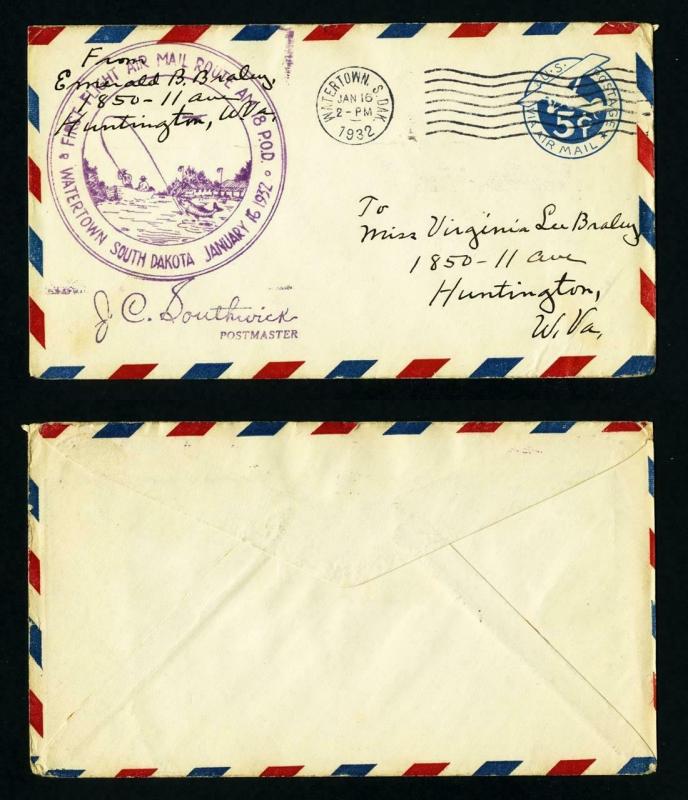 From
Emerald B. Braley,
1850-11 ave
Huntington, W.Va.
FIRST FLIGHT AIR MAIL ROUTE AM 18 P.O.D.
WATERTOWN SOUTH DAKOTA JANUARY 16 1932
J C. Southwick
POSTMASTER
WATERTOWN, S. DAK.
JAN 16
2-PM
1932
U.S. POSTAGE
5¢
VIA AIR MAIL
To
Miss Virginia Lee Braley
1850-11 ave
Huntington,
W. Va,